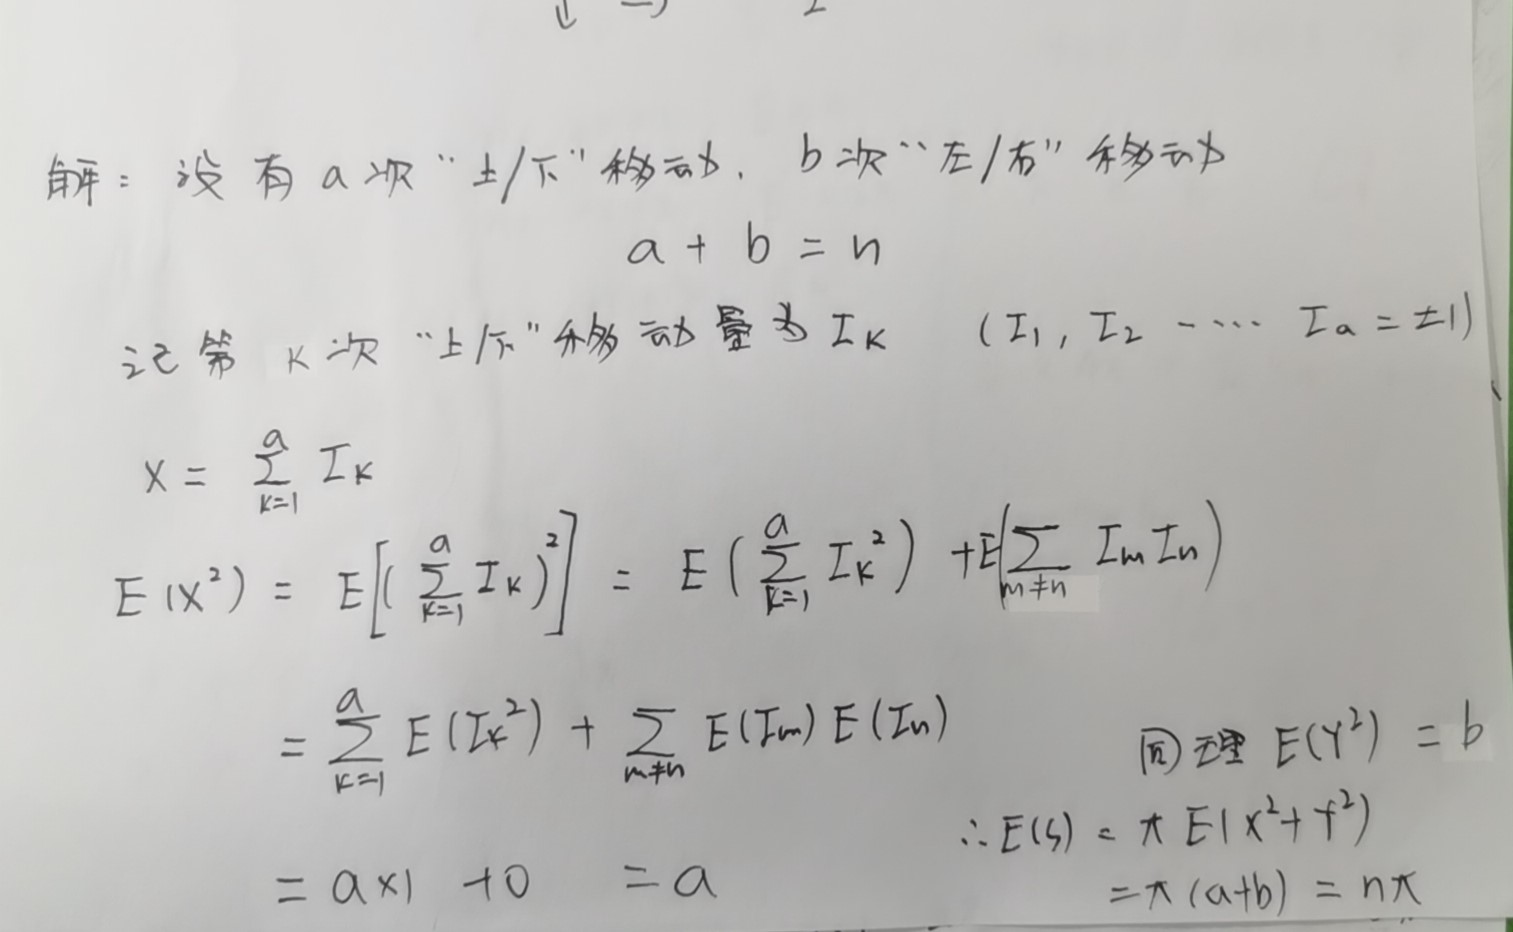 解：设有a次“上/下”移动．b次“左/右”移动
a + b = n
记第 K次“上/下”移动量为 I_K (I_1, I_2 ····· I_a = ±1)
X = \sum_{K=1}^{a} I_K
E(X^2) = E[(\sum_{K=1}^{a} I_K)^2] = E(\sum_{K=1}^{a} I_K^2) + E(\sum_{m≠n} I_m I_n)
= \sum_{K=1}^{a} E(I_K^2) + \sum_{m≠n} E(I_m) E(I_n)
= a×1 +0 = a
同理 E(Y^2) = b
∴E(S) = π E(X^2+Y^2)
=π(a+b) = nπ